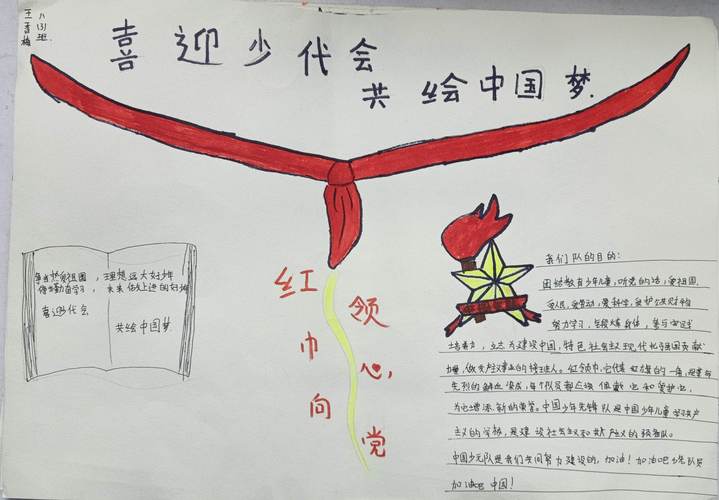 八(3)班
王青梅
喜迎少代会
共绘中国梦
争当热爱祖国，理想远大好少年
勤学习，未来 向上进的好少年
喜迎少代会
共绘中国梦
红领巾心向党
我们队的目的：
团结教育少年儿童，听党的话，爱祖国
爱人民，爱劳动，爱科学，爱护公共财物
努力学习，锻炼身体，参与实践
培养能力，立志为建设中国特色社会主义现代化强国贡献
力量，做共产主义事业的接班人。红领巾，它代表红旗的一角，是革命
先烈的鲜血染成，每个队员都应该佩戴它和爱护它，
为它增添新的荣誉。中国少年先锋队是中国少年儿童学习共产
主义的学校，是建设社会主义和共产主义的预备队。
中国少先队是我们共同努力建设的，加油！加油吧少先队员
加油吧中国！